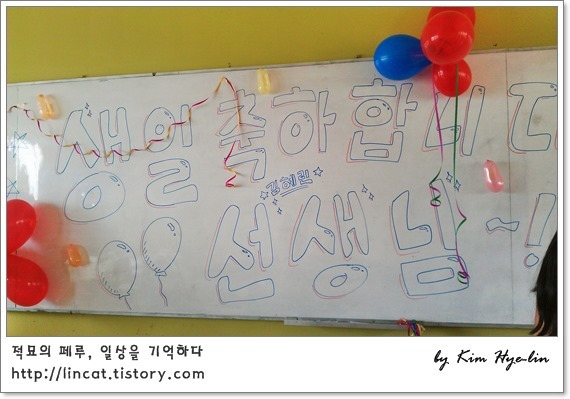 생일축하합니다
김혜린
선생님~!
적묘의 페루, 일상을 기억하다
by Kim Hye-lin
http://lincat.tistory.com